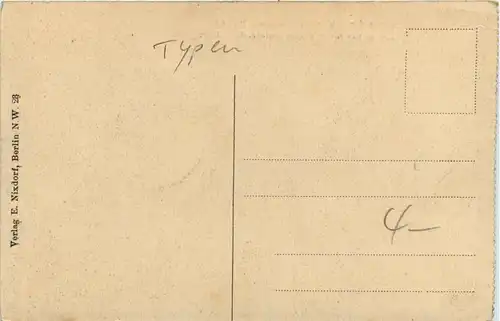 Typen
Verlag E. Nixdorf, Berlin N.W. 23
4-